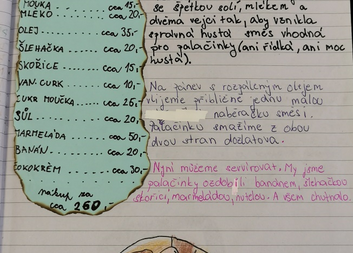 MOUKA ..... cca 15,-
MLÉKO ... cca 20,-
OLEJ ..... cca 35,-
ŠLEHAČKA .. cca 20,-
SKOŘICE .... cca 15,-
VAN. CUKR .. cca 10,-
CUKR MOUČKA .. cca 25,-
SŮL ..... cca 20,-
MARMELÁDA .. cca 50,-
BANÁN ..... cca 20,-
ČOKOKRÉM ... cca 30,-
nákup za
cca 260,-
se špetkou soli, mlékem a
dvěma vejci tak, aby vznikla
správná hustá směs vhodná
pro palačinky (ani řídká, ani moc
hustá).
Na pánev s rozpáleným olejem
vlijeme přibližně jednu malou
naběračku směsi.
Palačinku smažíme z obou
dvou stran dozlatova.
Nyní můžeme servírovat. My jsme
palačinky ozdobili banánem, šlehačkou
skořicí, marmeládou, nutelou. A všem chutnalo.